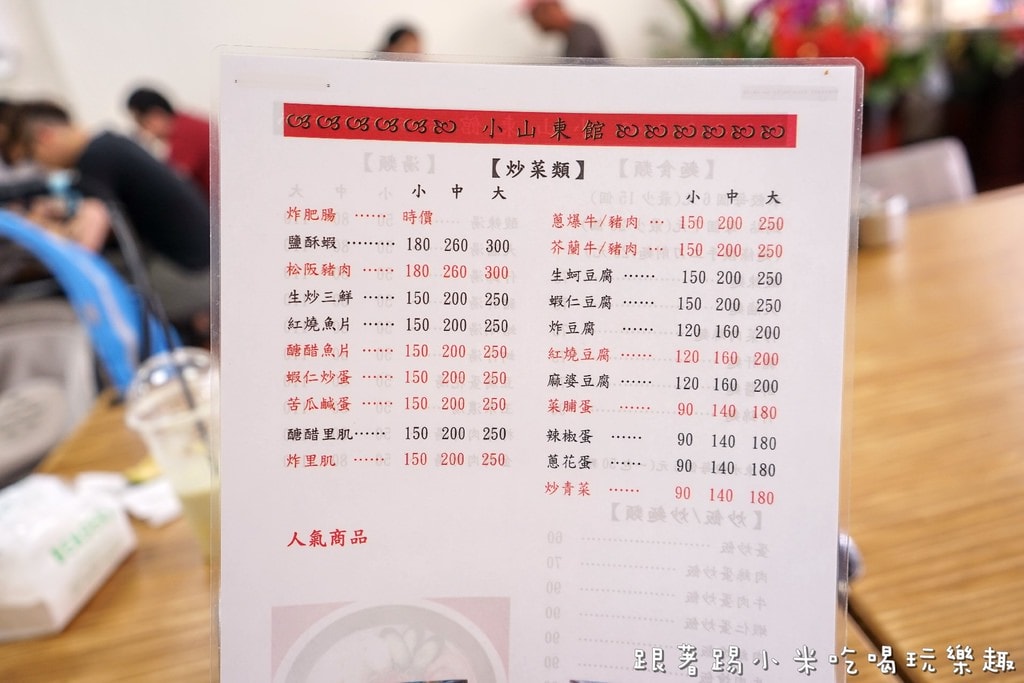 小山東館
【炒菜類】
小 中 大
炸肥腸 …… 時價
鹽酥蝦 ……… 180 260 300
松阪豬肉 …… 180 260 300
生炒三鮮 …… 150 200 250
紅燒魚片 …… 150 200 250
醣醋魚片 …… 150 200 250
蝦仁炒蛋 …… 150 200 250
苦瓜鹹蛋 …… 150 200 250
醣醋里肌 …… 150 200 250
炸里肌 …… 150 200 250
人氣商品
小 中 大
蔥爆牛/豬肉 … 150 200 250
芥蘭牛/豬肉 … 150 200 250
生蚵豆腐 …… 150 200 250
蝦仁豆腐 …… 150 200 250
炸豆腐 …… 120 160 200
紅燒豆腐 …… 120 160 200
麻婆豆腐 …… 120 160 200
菜脯蛋 …… 90 140 180
辣椒蛋 …… 90 140 180
蔥花蛋 …… 90 140 180
炒青菜 …… 90 140 180
跟著踢小米吃喝玩樂趣